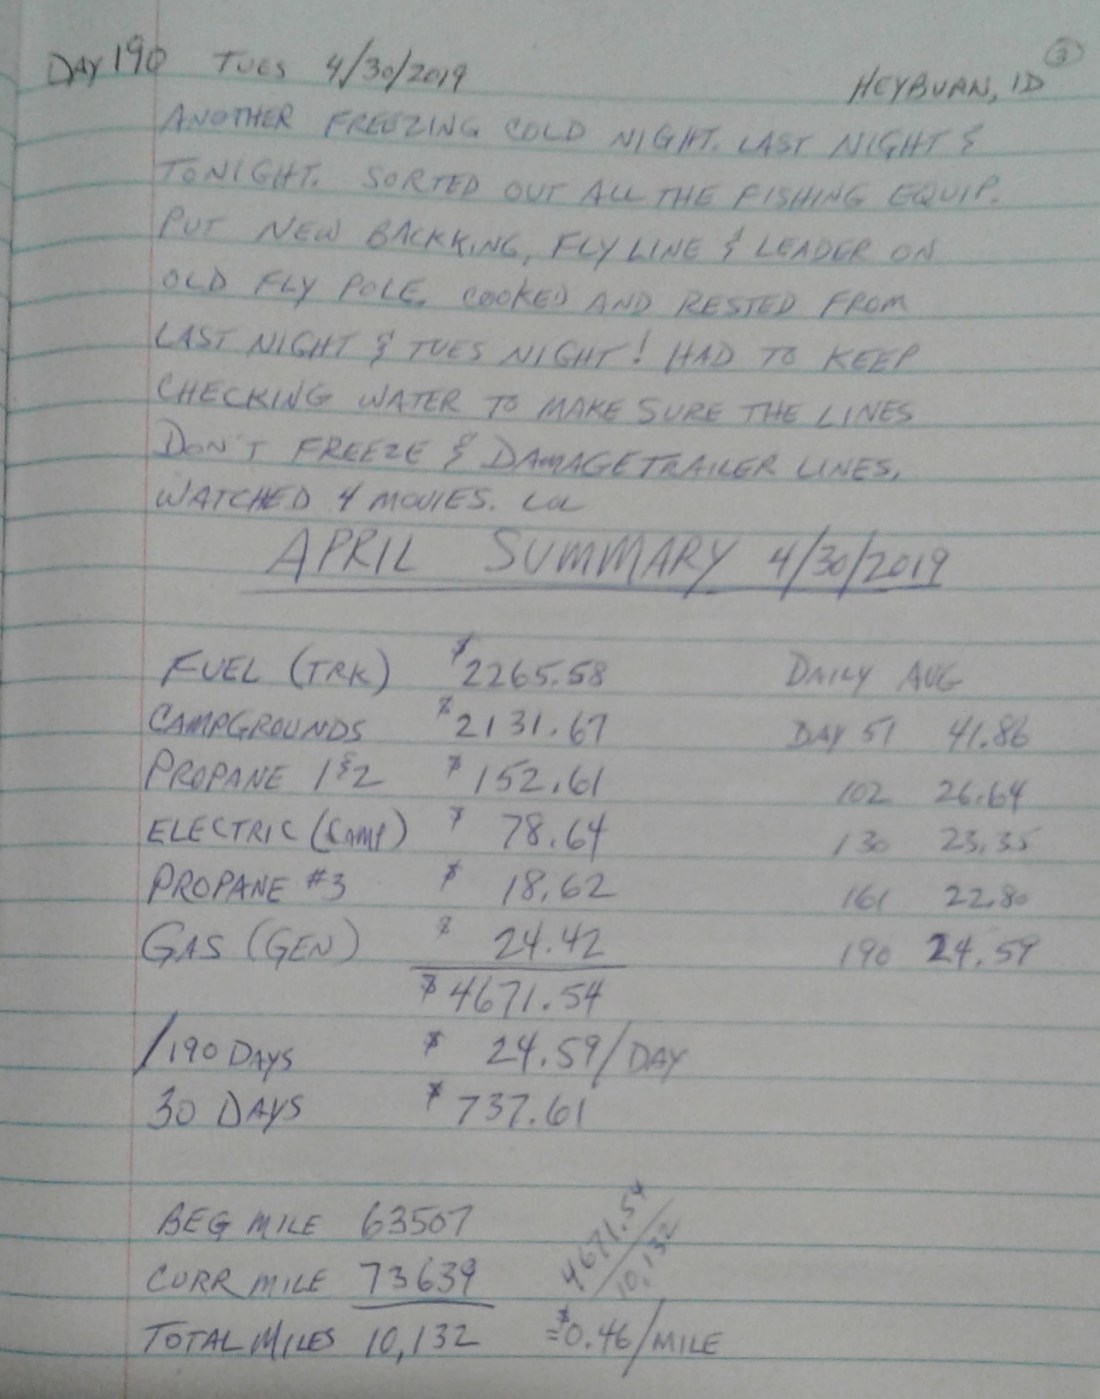 ③
DAY 190 TUES 4/30/2019 HEYBURN, ID
ANOTHER FREEZING COLD NIGHT. LAST NIGHT &
TONIGHT. SORTED OUT ALL THE FISHING EQUIP.
PUT NEW BACKKING, FLY LINE & LEADER ON
OLD FLY POLE. COOKED AND RESTED FROM
LAST NIGHT & TUES NIGHT! HAD TO KEEP
CHECKING WATER TO MAKE SURE THE LINES
DON'T FREEZE & DAMAGE TRAILER LINES.
WATCHED 4 MOVIES. LOL
APRIL SUMMARY 4/30/2019
FUEL (TRK) $2265.58 DAILY AVG
CAMPGROUNDS $2131.67 DAY 51 41.86
PROPANE 1&2 $152.61 102 26.64
ELECTRIC (CAMP) $78.64 130 23.35
PROPANE #3 $18.62 161 22.80
GAS (GEN) $24.42 190 24.59
$4671.54
/190 DAYS $24.59/DAY
30 DAYS $737.61
BEG MILE 63507
CURR MILE 73639 4671.54/10,132
TOTAL MILES 10,132 =$0.46/MILE